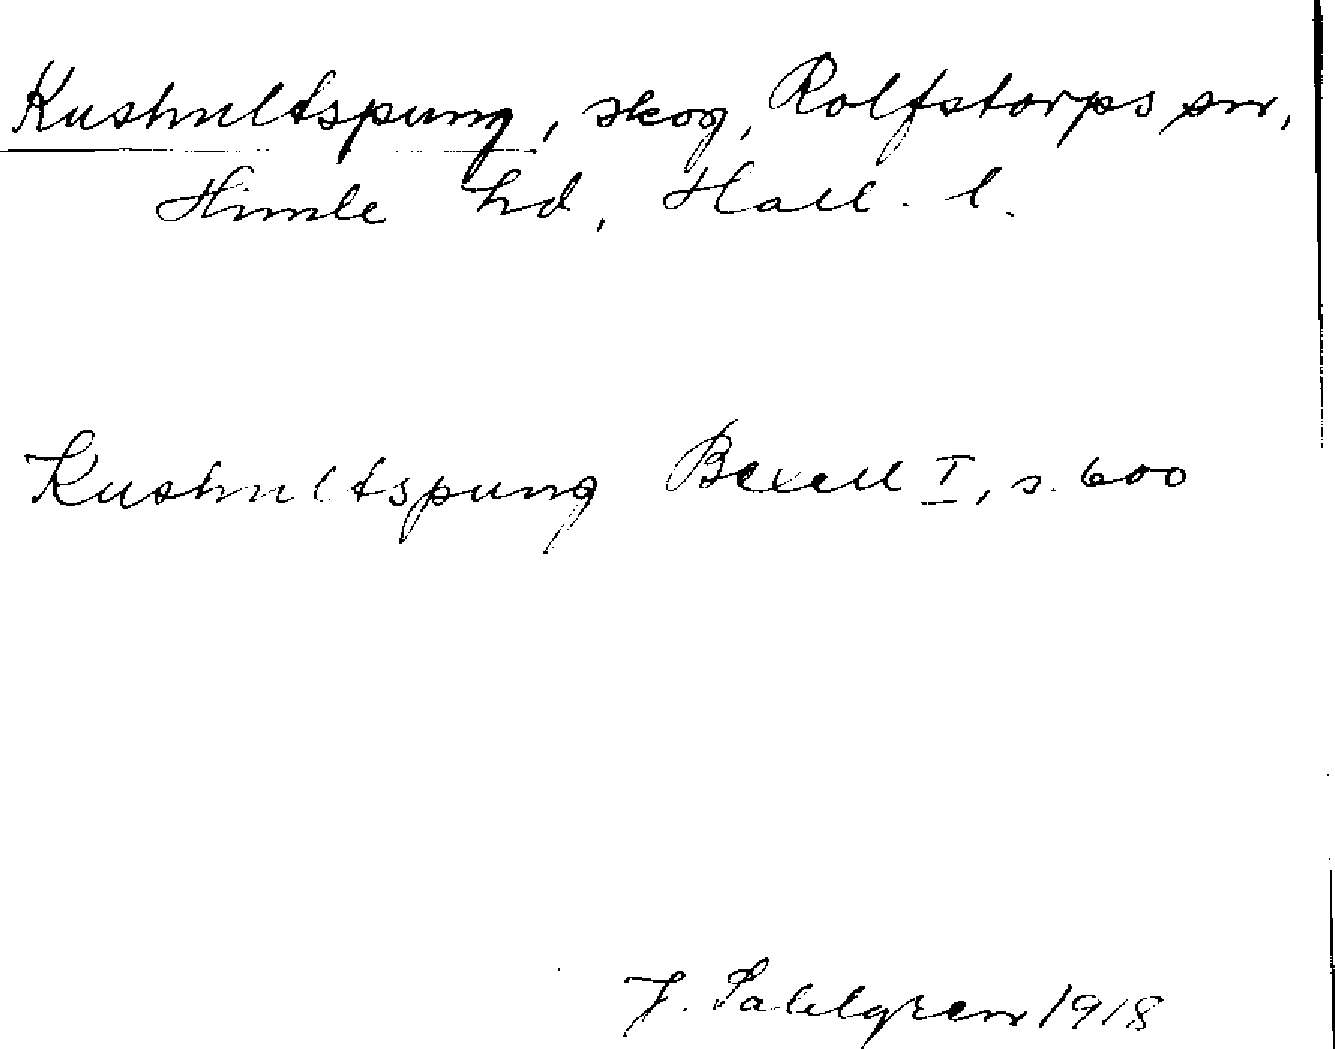 Kushultspung, skog, Rolfstorps sn,
Himle hd, Hall. l.
Kushultspung Bexell I, s. 600
J. Sahlgren 1918